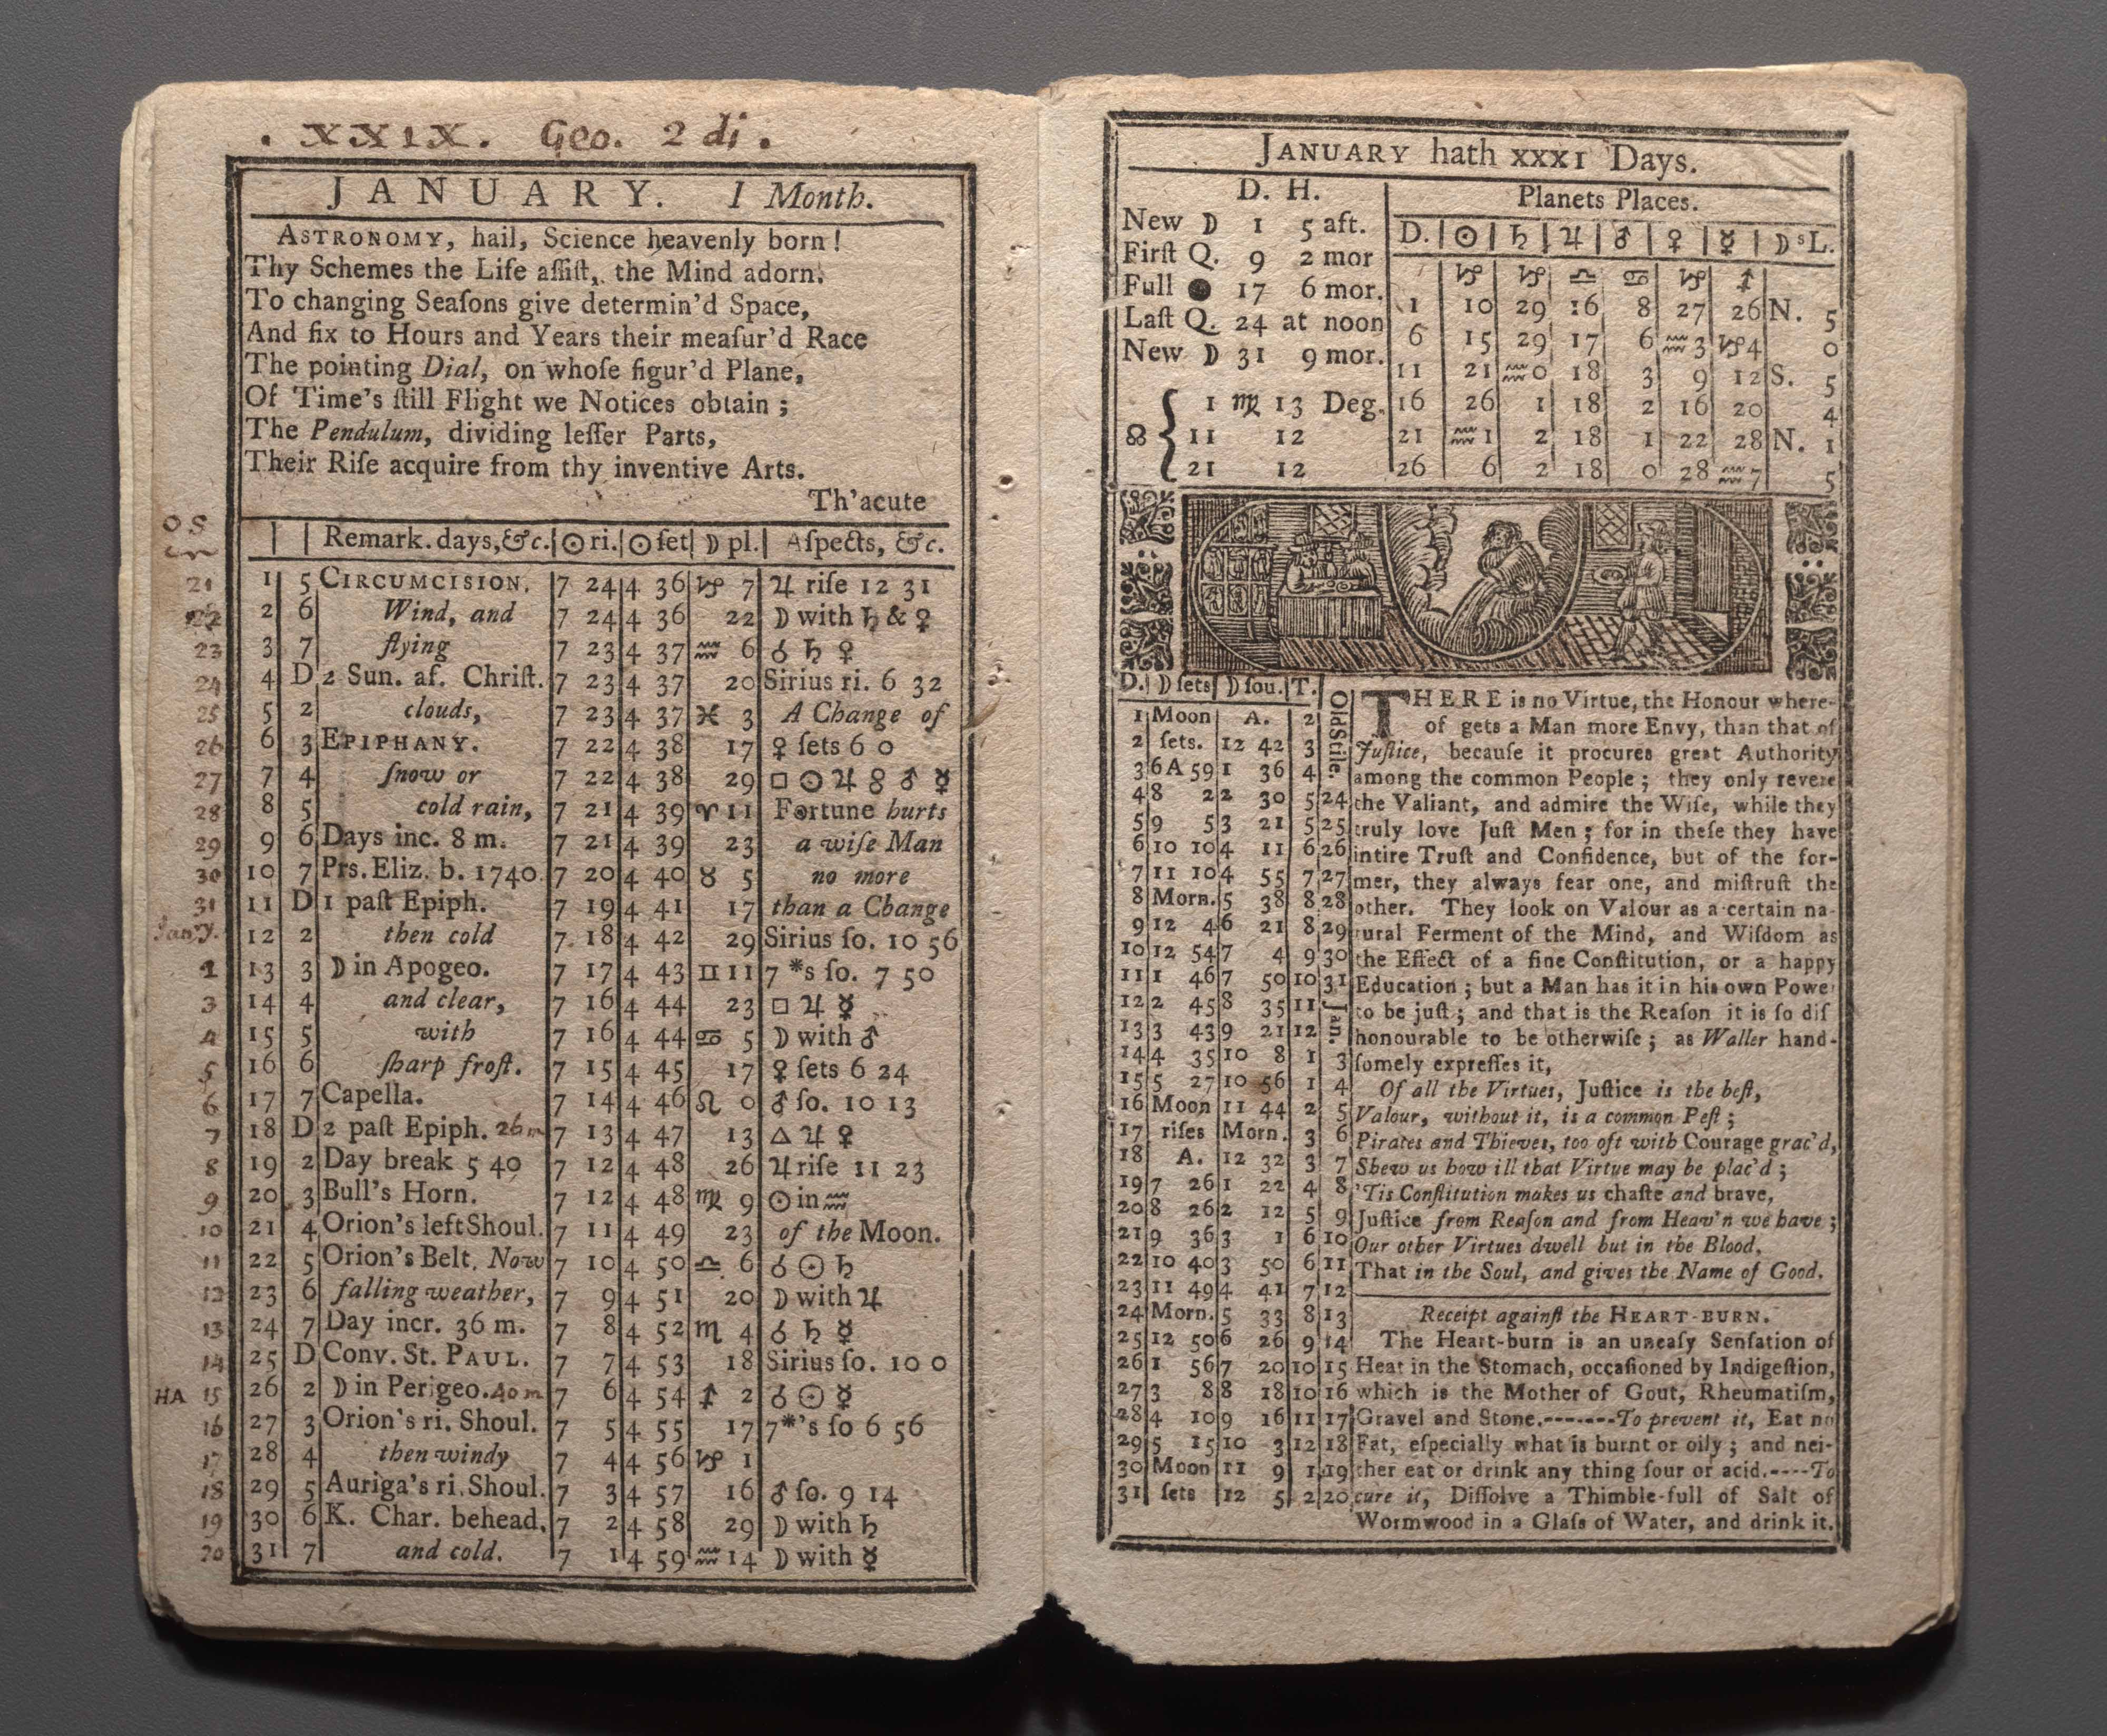 . XXIX. Geo. 2 di.
JANUARY. I Month.
ASTRONOMY, hail, Science heavenly born!
Thy Schemes the Life aſſiſt, the Mind adorn.
To changing Seaſons give determin'd Space,
And fix to Hours and Years their meaſur'd Race
The pointing Dial, on whoſe figur'd Plane,
Of Time's ſtill Flight we Notices obtain;
The Pendulum, dividing leſſer Parts,
Their Riſe acquire from thy inventive Arts.
Th'acute
OS
| | Remark. days, &c. | ☉ ri. | ☉ ſet | ☽ pl. | Aſpects, &c.
21 1 5 CIRCUMCISION. 7 24 4 36 ♑ 7 ♃ riſe 12 31
22 2 6 Wind, and 7 24 4 36 22 ☽ with ♄ & ♀
23 3 7 flying 7 23 4 37 ♒ 6 ☌ ♄ ♀
24 4 D 2 Sun. af. Chriſt. 7 23 4 37 20 Sirius ri. 6 32
25 5 2 clouds, 7 23 4 37 ♓ 3 A Change of
26 6 3 EPIPHANY. 7 22 4 38 17 ♀ ſets 6 0
27 7 4 ſnow or 7 22 4 38 29 □ ☉ ♃ ☍ ♂ ☿
28 8 5 cold rain, 7 21 4 39 ♈ 11 Fortune hurts
29 9 6 Days inc. 8 m. 7 21 4 39 23 a wiſe Man
30 10 7 Prs. Eliz. b. 1740. 7 20 4 40 ♉ 5 no more
31 11 D 1 paſt Epiph. 7 19 4 41 17 than a Change
Jan'y. 12 2 then cold 7 18 4 42 29 Sirius ſo. 10 56
2 13 3 ☽ in Apogeo. 7 17 4 43 ♊ 11 7 *s ſo. 7 50
3 14 4 and clear, 7 16 4 44 23 □ ♃ ☿
4 15 5 with 7 16 4 44 ♋ 5 ☽ with ♂
5 16 6 ſharp froſt. 7 15 4 45 17 ♀ ſets 6 24
6 17 7 Capella. 7 14 4 46 ♌ 0 ♂ ſo. 10 13
7 18 D 2 paſt Epiph. 26 m 7 13 4 47 13 △ ♃ ♀
8 19 2 Day break 5 40 7 12 4 48 26 ♃ riſe 11 23
9 20 3 Bull's Horn. 7 12 4 48 ♍ 9 ☉ in ♒
10 21 4 Orion's left Shoul. 7 11 4 49 23 of the Moon.
11 22 5 Orion's Belt. Now 7 10 4 50 ♎ 6 ☌ ☉ ♄
12 23 6 falling weather, 7 9 4 51 20 ☽ with ♃
13 24 7 Day incr. 36 m. 7 8 4 52 ♏ 4 ☌ ♄ ☿
14 25 D Conv. St. PAUL. 7 7 4 53 18 Sirius ſo. 10 0
HA 15 26 2 ☽ in Perigeo. 40 m 7 6 4 54 ♐ 2 ☌ ☉ ☿
16 27 3 Orion's ri. Shoul. 7 5 4 55 17 7*'s ſo 6 56
17 28 4 then windy 7 4 4 56 ♑ 1
18 29 5 Auriga's ri. Shoul. 7 3 4 57 16 ♂ ſo. 9 14
19 30 6 K. Char. behead. 7 2 4 58 29 ☽ with ♄
20 31 7 and cold. 7 1 4 59 ♒ 14 ☽ with ☿
JANUARY hath XXXI Days.
D. H.
New ☽ 1 5 aft.
First Q. 9 2 mor
Full ● 17 6 mor.
Laſt Q. 24 at noon
New ☽ 31 9 mor.
☊ { 1 ♍ 13 Deg.
11 12
21 12
Planets Places.
D. | ☉ | ♄ | ♃ | ♂ | ♀ | ☿ | ☽ s L.
♑ ♑ ♎ ♋ ♑ ♐
1 10 29 16 8 27 26 N. 5
6 15 29 17 6 ♒ 3 ♑ 4 0
11 21 ♒ 0 18 3 9 12 S. 5
16 26 1 18 2 16 20 4
21 ♒ 1 2 18 1 22 28 N. 1
26 6 2 18 0 28 ♒ 7 5
D. | ☽ ſets | ☽ ſou. | T. | Old Stile.
1 Moon A. 2
2 ſets. 12 42 3
3 6A 59 1 36 4
4 8 2 2 30 5 24
5 9 5 3 21 5 25
6 10 10 4 11 6 26
7 11 10 4 55 7 27
8 Morn. 5 38 8 28
9 12 4 6 21 8 29
10 12 54 7 4 9 30
11 1 46 7 50 10 31
12 2 45 8 35 11 Jan.
13 3 43 9 21 12
14 4 35 10 8 1 3
15 5 27 10 56 1 4
16 Moon 11 44 2 5
17 riſes Morn. 3 6
18 A. 12 32 3 7
19 7 26 1 22 4 8
20 8 26 2 12 5 9
21 9 36 3 1 6 10
22 10 40 3 50 6 11
23 11 49 4 41 7 12
24 Morn. 5 33 8 13
25 12 50 6 26 9 14
26 1 56 7 20 10 15
27 3 8 8 18 10 16
28 4 10 9 16 11 17
29 5 15 10 3 12 18
30 Moon 11 9 1 19
31 ſets 12 5 2 20
THERE is no Virtue, the Honour where-
of gets a Man more Envy, than that of
Juſtice, becauſe it procures great Authority
among the common People; they only revere
the Valiant, and admire the Wiſe, while they
truly love Juſt Men; for in theſe they have
intire Truſt and Confidence, but of the for-
mer, they always fear one, and miſtruſt the
other. They look on Valour as a certain na-
tural Ferment of the Mind, and Wiſdom as
the Effect of a fine Conſtitution, or a happy
Education; but a Man has it in his own Powe
to be juſt; and that is the Reaſon it is ſo diſ
honourable to be otherwiſe; as Waller hand-
ſomely expreſſes it,
Of all the Virtues, Juſtice is the beſt,
Valour, without it, is a common Peſt;
Pirates and Thieves, too oft with Courage grac'd,
Shew us how ill that Virtue may be plac'd;
'Tis Conſtitution makes us chaſte and brave,
Juſtice from Reaſon and from Heav'n we have;
Our other Virtues dwell but in the Blood,
That in the Soul, and gives the Name of Good.
Receipt againſt the HEART-BURN.
The Heart-burn is an uneaſy Senſation of
Heat in the Stomach, occaſioned by Indigeſtion,
which is the Mother of Gout, Rheumatiſm,
Gravel and Stone.-------To prevent it, Eat no
Fat, eſpecially what is burnt or oily; and nei-
ther eat or drink any thing ſour or acid.----To
cure it, Diſſolve a Thimble-full of Salt of
Wormwood in a Glaſs of Water, and drink it.